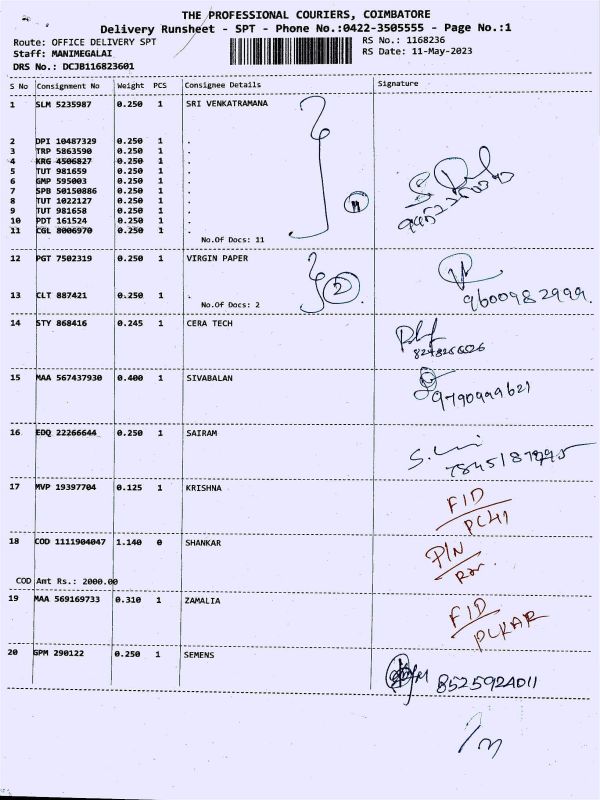 THE PROFESSIONAL COURIERS, COIMBATORE
Delivery Runsheet - SPT - Phone No.:0422-3505555 - Page No.:1
Route: OFFICE DELIVERY SPT
RS No.: 1168236
Staff: MANIMEGALAI
RS Date: 11-May-2023
DRS No.: DCJB116823601
S No Consignment No Weight PCS Consignee Details Signature
1 SLM 5235987 0.250 1 SRI VENKATRAMANA
2 DPI 10487329 0.250 1 .
3 TRP 5863590 0.250 1 .
4 KRG 4506827 0.250 1 .
5 TUT 981659 0.250 1 .
6 GMP 595003 0.250 1 .
7 SPB 50150886 0.250 1 .
8 TUT 1022127 0.250 1 .
9 TUT 981658 0.250 1 .
10 PDT 161524 0.250 1 .
11 CGL 8006970 0.250 1 .
No.Of Docs: 11
11
12 PGT 7502319 0.250 1 VIRGIN PAPER
13 CLT 887421 0.250 1 .
No.Of Docs: 2
2
9600982999.
14 STY 868416 0.245 1 CERA TECH
15 MAA 567437930 0.400 1 SIVABALAN
9790999621
16 EDQ 22266644 0.250 1 SAIRAM
17 MVP 19397704 0.125 1 KRISHNA
FID
18 COD 1111904047 1.140 0 SHANKAR
PIN
COD Amt Rs.: 2000.00
19 MAA 569169733 0.310 1 ZAMALIA
FID
PLKAR
20 GPM 290122 0.250 1 SEMENS
8525924011